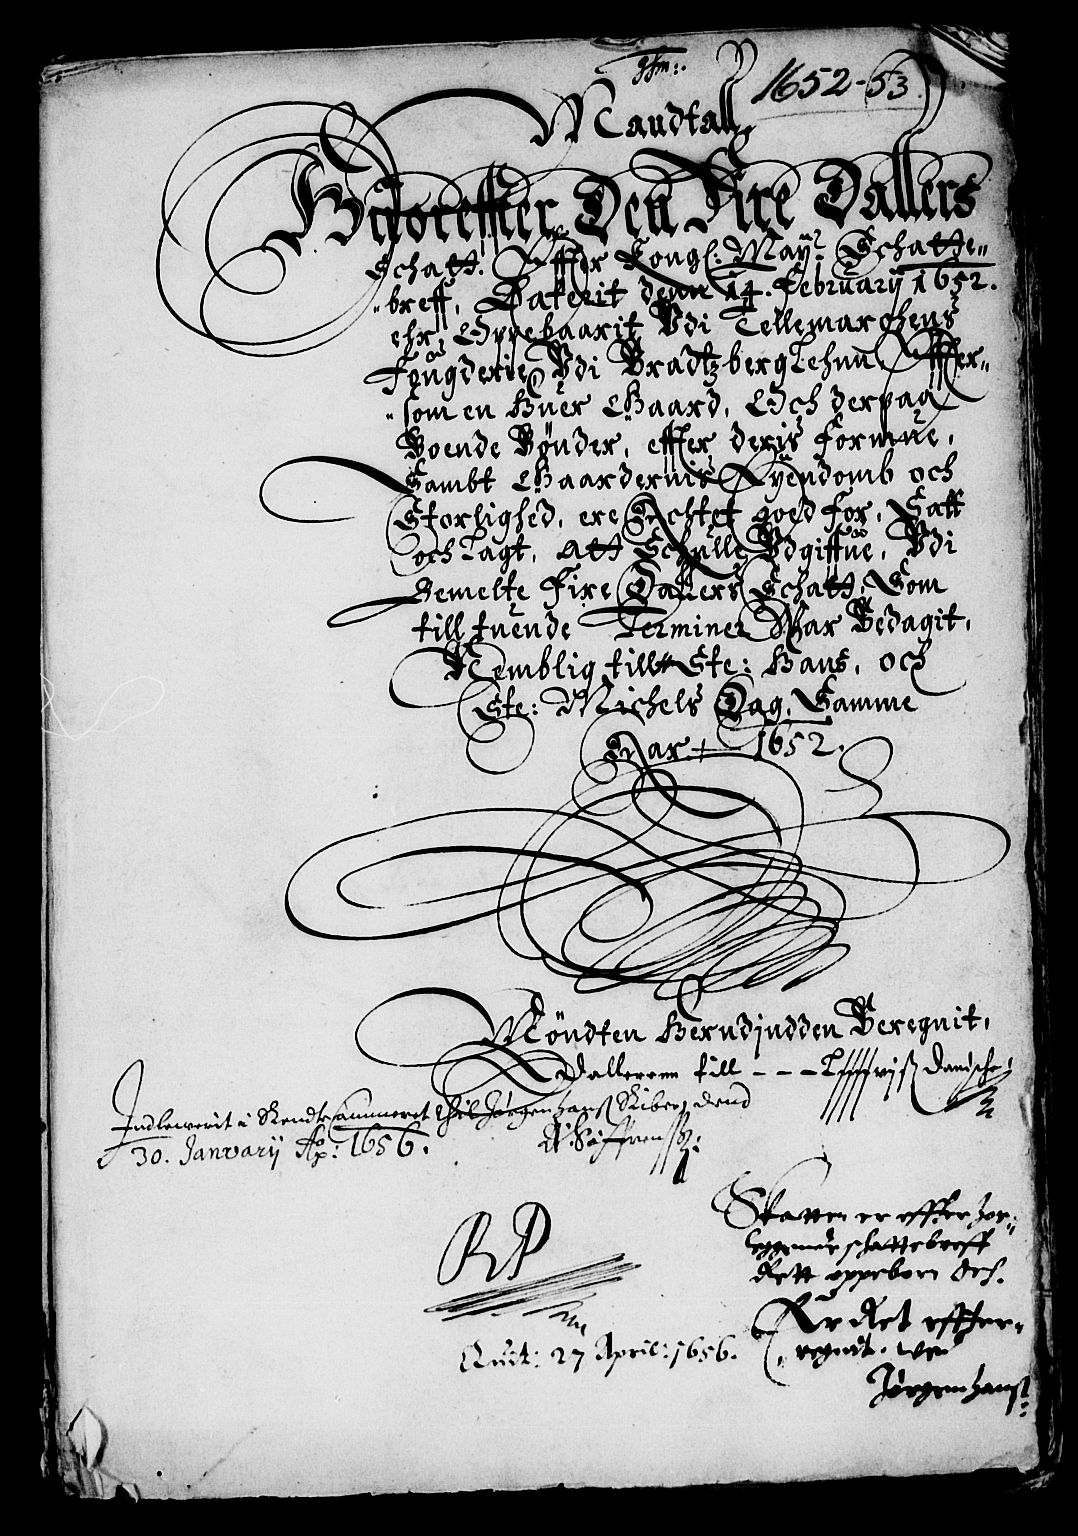 1652-53.
Mandtall
Hvoreffter Den Fire Dallers
Schatt. Effter Kongl: May: Schatte„
„breff, Daterit denn 14. February 1652.
ehr Oppebaarit Vdi Tellemarchens
Fougderie Vdi Bradtzberg Lehnn Effter„
„som en huer Gaard, Och derpaa
Boende Bønder, effter deris formue,
Sambt Gaardernis Eyendomb och
Storlighed, ere Achtet goed for, Satt
och Lagt, att Schulle Vdgiffue, Vdi
bemelte Fire Dallers Schatt, Som
till tuende Terminer War Bedagit,
Nemblig till Ste: Hans, och
Ste: Michels Dag, Samme
Aar 1652.
Møndten herudjndden Beregnit,
Dalleren till - - - Danische
Indlewerit i Rendtecammeret Jørgen Hanß Skiber, dend
30. January Ao: 1656.
RP
Skatten er effter for„
leggende schattebreff
Rett oppeboren
Er Ret effter„
„regnit. wed
Jørgen Hanß:
Quit: 27 April: 1656.